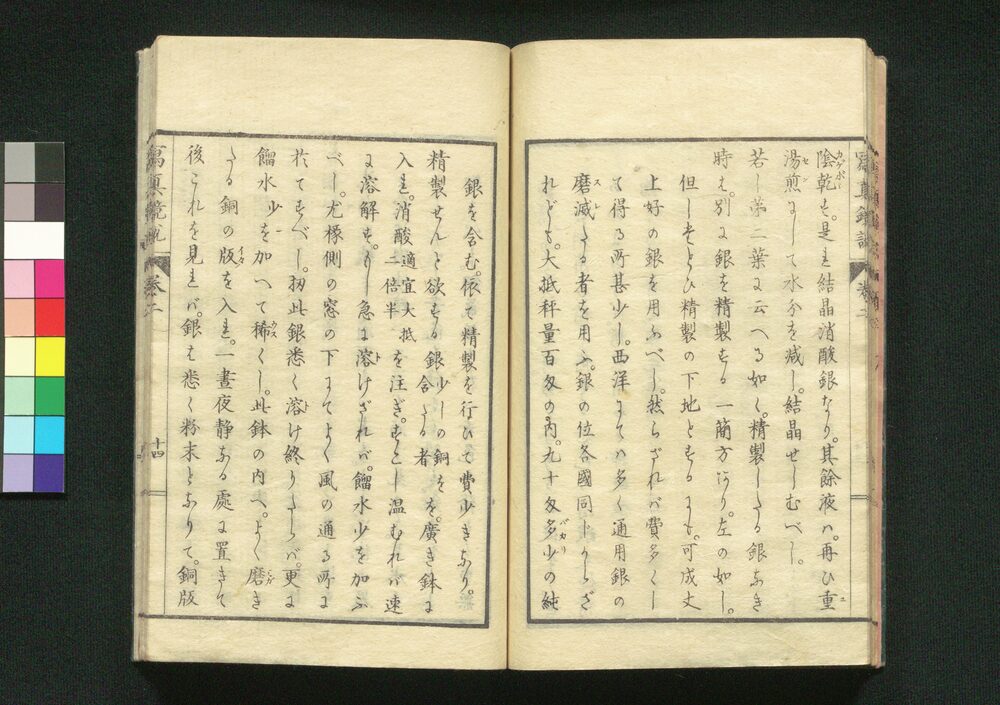 陰乾す。是れ結晶消酸銀なり。其餘液ハ。再ひ重
湯煎にして水分を減し。結晶せしむべし。
若し第二葉に云へる如く。精製したる銀なき
時は。別に銀を精製する一簡方あり。左の如し。
但したとひ精製の下地とするにも。可成丈
上好の銀を用ふべし。然らざれバ費多くし
て得る所甚少し。西洋にてハ多く通用銀の
磨减したる者を用ふ。銀の位各國同じからざ
れども。大抵秤量百匁の内。九十匁多少の純
銀を含む。依て精製を行ひて費少きなり。
精製せんと欲する銀少しの銅を含たる者を。廣き鉢に
入れ。消酸適宜大抵二倍半を注ぎ。すこし温むれバ速
に溶解す。もし急に溶けざれバ。餾水少を加ふ
べし。尤椽側の窓の下にてよく風の通る所に
於てすべし。扨此銀悉く溶け終りたらバ。更に
餾水少しを加へて稀くし。此鉢の内へ。よく磨き
たる銅の版を入れ。一晝夜静なる處に置きて
後これを見れバ。銀は悉く粉末となりて。銅版
寫真鏡説 卷二
十四